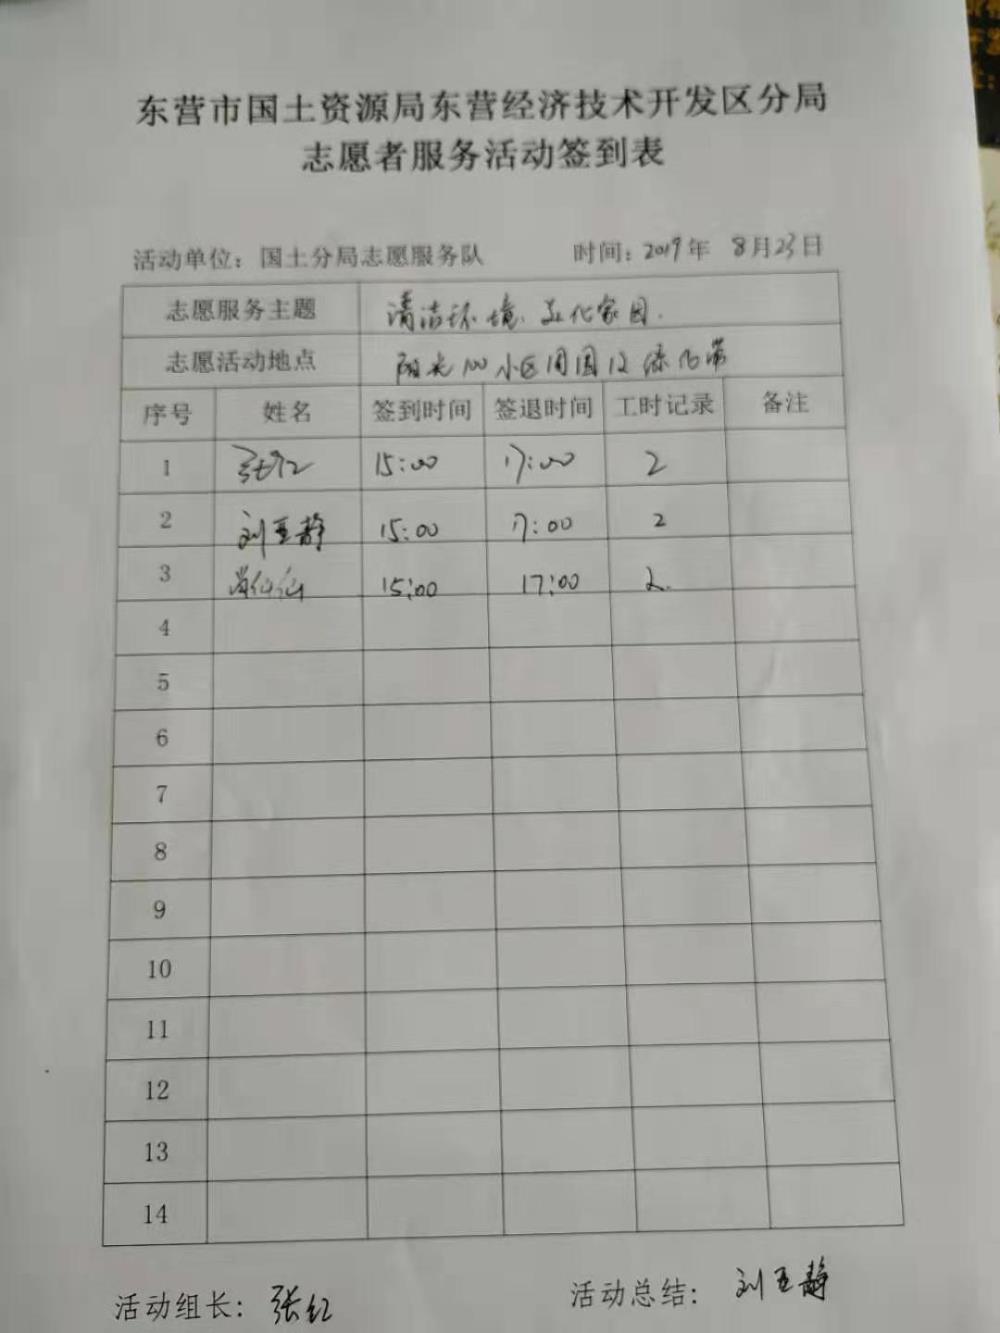 东营市国土资源局东营经济技术开发区分局
志愿者服务活动签到表
活动单位：国土分局志愿服务队 时间：2019年 8月23日
志愿服务主题 清洁环境、美化家园.
志愿活动地点 阳光100小区周围及绿化带
序号 姓名 签到时间 签退时间 工时记录 备注
1 张红 15:00 17:00 2
2 刘亚静 15:00 17:00 2
3 15:00 17:00 2
4
5
6
7
8
9
10
11
12
13
14
活动组长：张红 活动总结：刘亚静